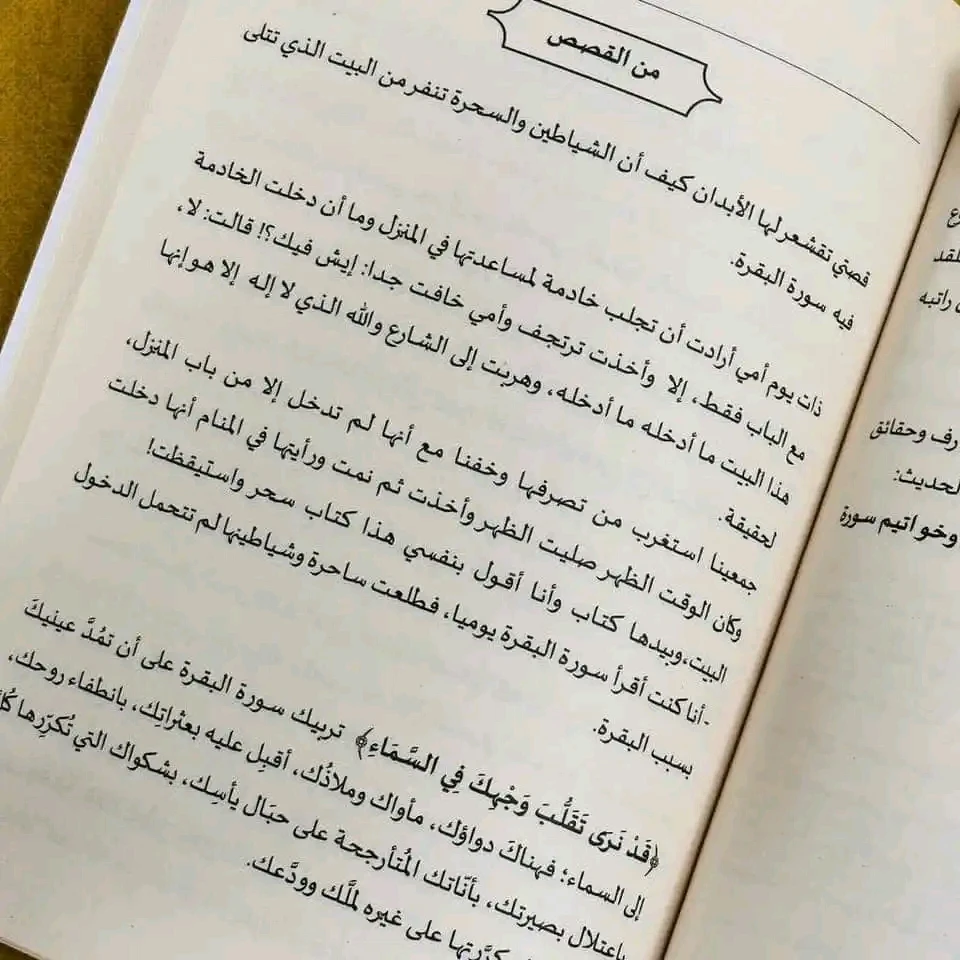 من القصص
قصتي تقشعر لها الأبدان كيف أن الشياطين والسحرة تنفر من البيت الذي تتلى
فيه سورة البقرة.
ذات يوم أمي أرادت أن تجلب خادمة لمساعدتها في المنزل وما أن دخلت الخادمة
مع الباب فقط، إلا وأخذت ترتجف وأمي خافت جدا: إيش فيك؟! قالت: لا،
هذا البيت ما أدخله ما أدخله، وهربت إلى الشارع والله الذي لا إله إلا هو إنها
لحقيقة.
جمعينا استغرب من تصرفها وخفنا مع أنها لم تدخل إلا من باب المنزل،
وكان الوقت الظهر صليت الظهر وأخذت ثم نمت ورأيتها في المنام أنها دخلت
البيت،وبيدها كتاب وأنا أقول بنفسي هذا كتاب سحر واستيقظت!
-أنا كنت أقرأ سورة البقرة يوميا، فطلعت ساحرة وشياطينها لم تتحمل الدخول
بسبب البقرة.
﴿قَدْ نَرَى تَقَلُّبَ وَجْهِكَ فِي السَّمَاءِ﴾ تربيك سورة البقرة على أن تمُدَّ عينيكَ
إلى السماء؛ فهناكَ دواؤك، مأواك وملاذُك، أقبِل عليه بعثراتِك، بانطفاء روحك،
باعتلال بصيرتك، بأنّاتك المُتأرجحة على حبَال يأسِك، بشكواك التي تُكرّرها
كرَّرتها على غيره لملَّك وودَّعك.
راتبه
رف وحقائق
لحديث:
وخواتيم سورة